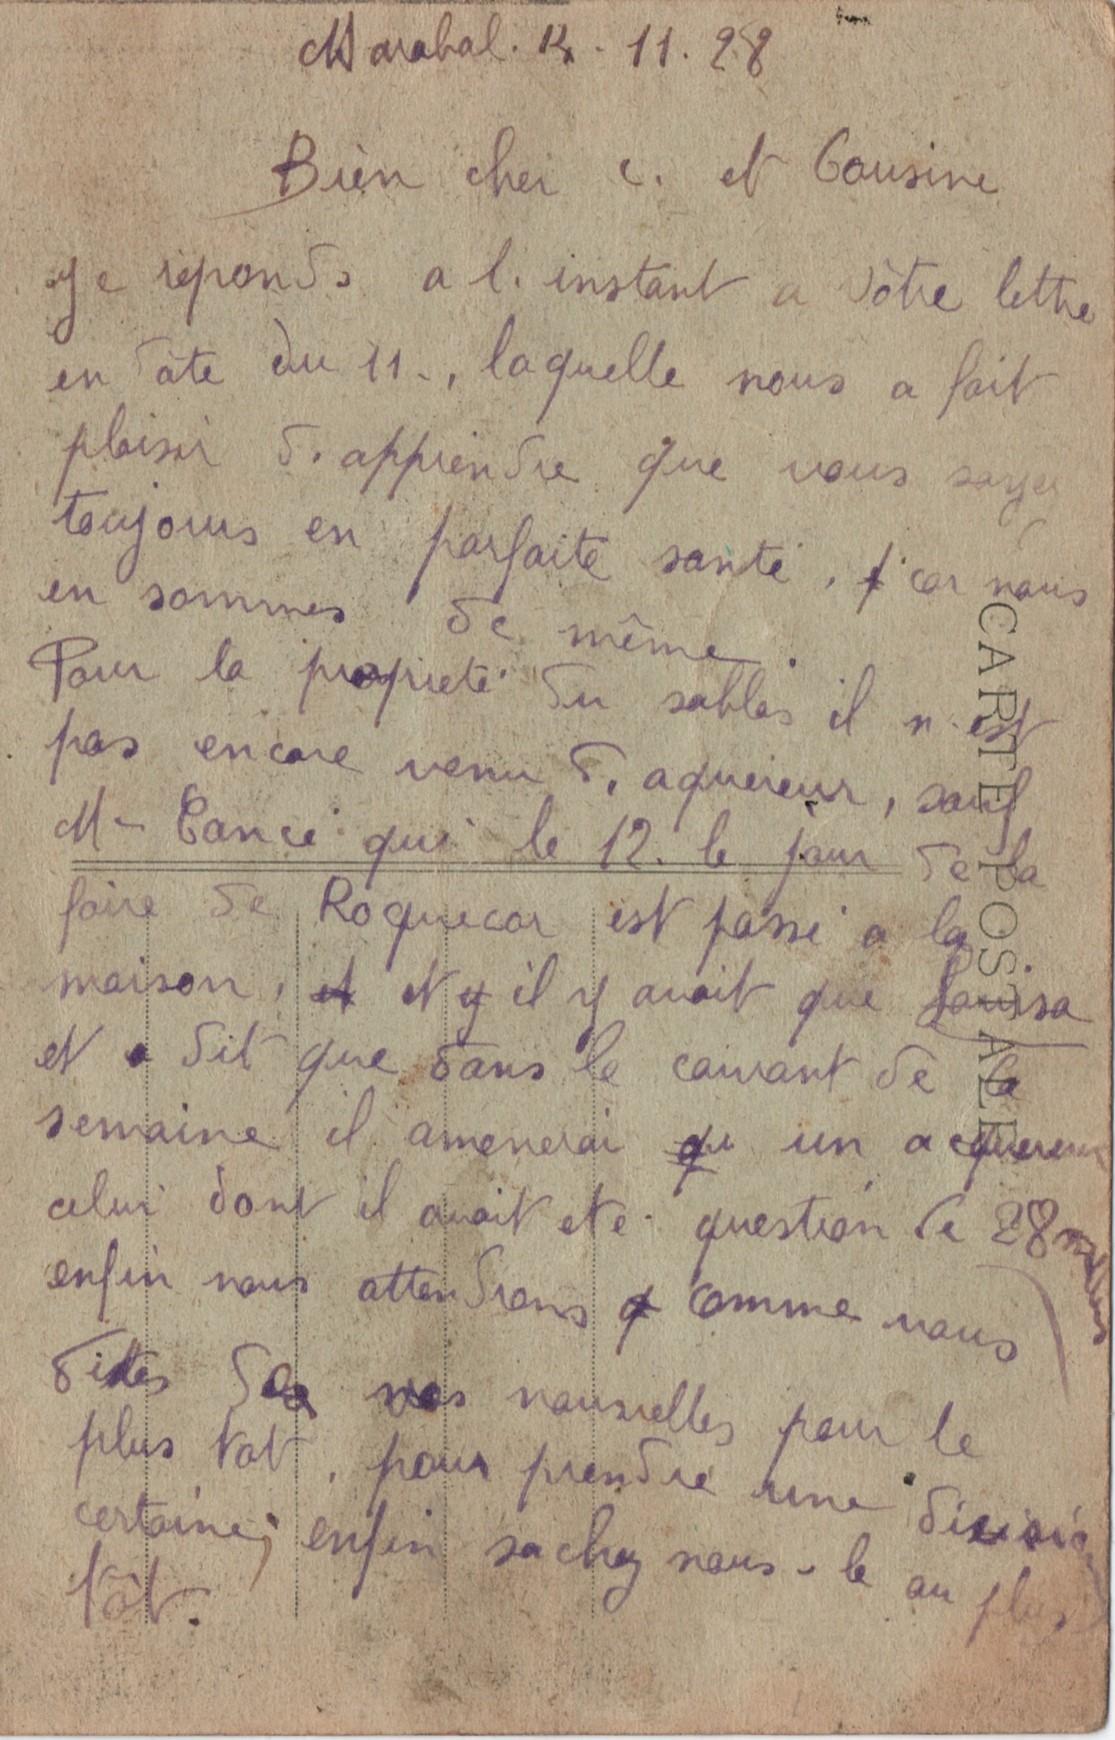 Marabal. 12. 11. 28
Bien cher c. et Cousine
Je reponds a l. instant a vôtre lettre
en date du 11., laquelle nous a fait
plaisir d. apprendre que vous soyez
toujours en parfaite santé, car nous
en sommes de même.
Pour la propriété du sables il n. est
pas encore venu d. aquereur, sauf
M- Cancé qui le 12. le jour de la
foire de Roquecor est passé a la
maison, et il y avait que Louisa
et a dit que dans le courant de la
semaine il amenerai un acquereur
celui dont il avait eté question de 28
enfin nous attendrons comme vous
dites de vos nouvelles pour le
plus tot, pour prendre une
certaine; enfin sachez nous-le au plus
tôt.
CARTE POSTALE